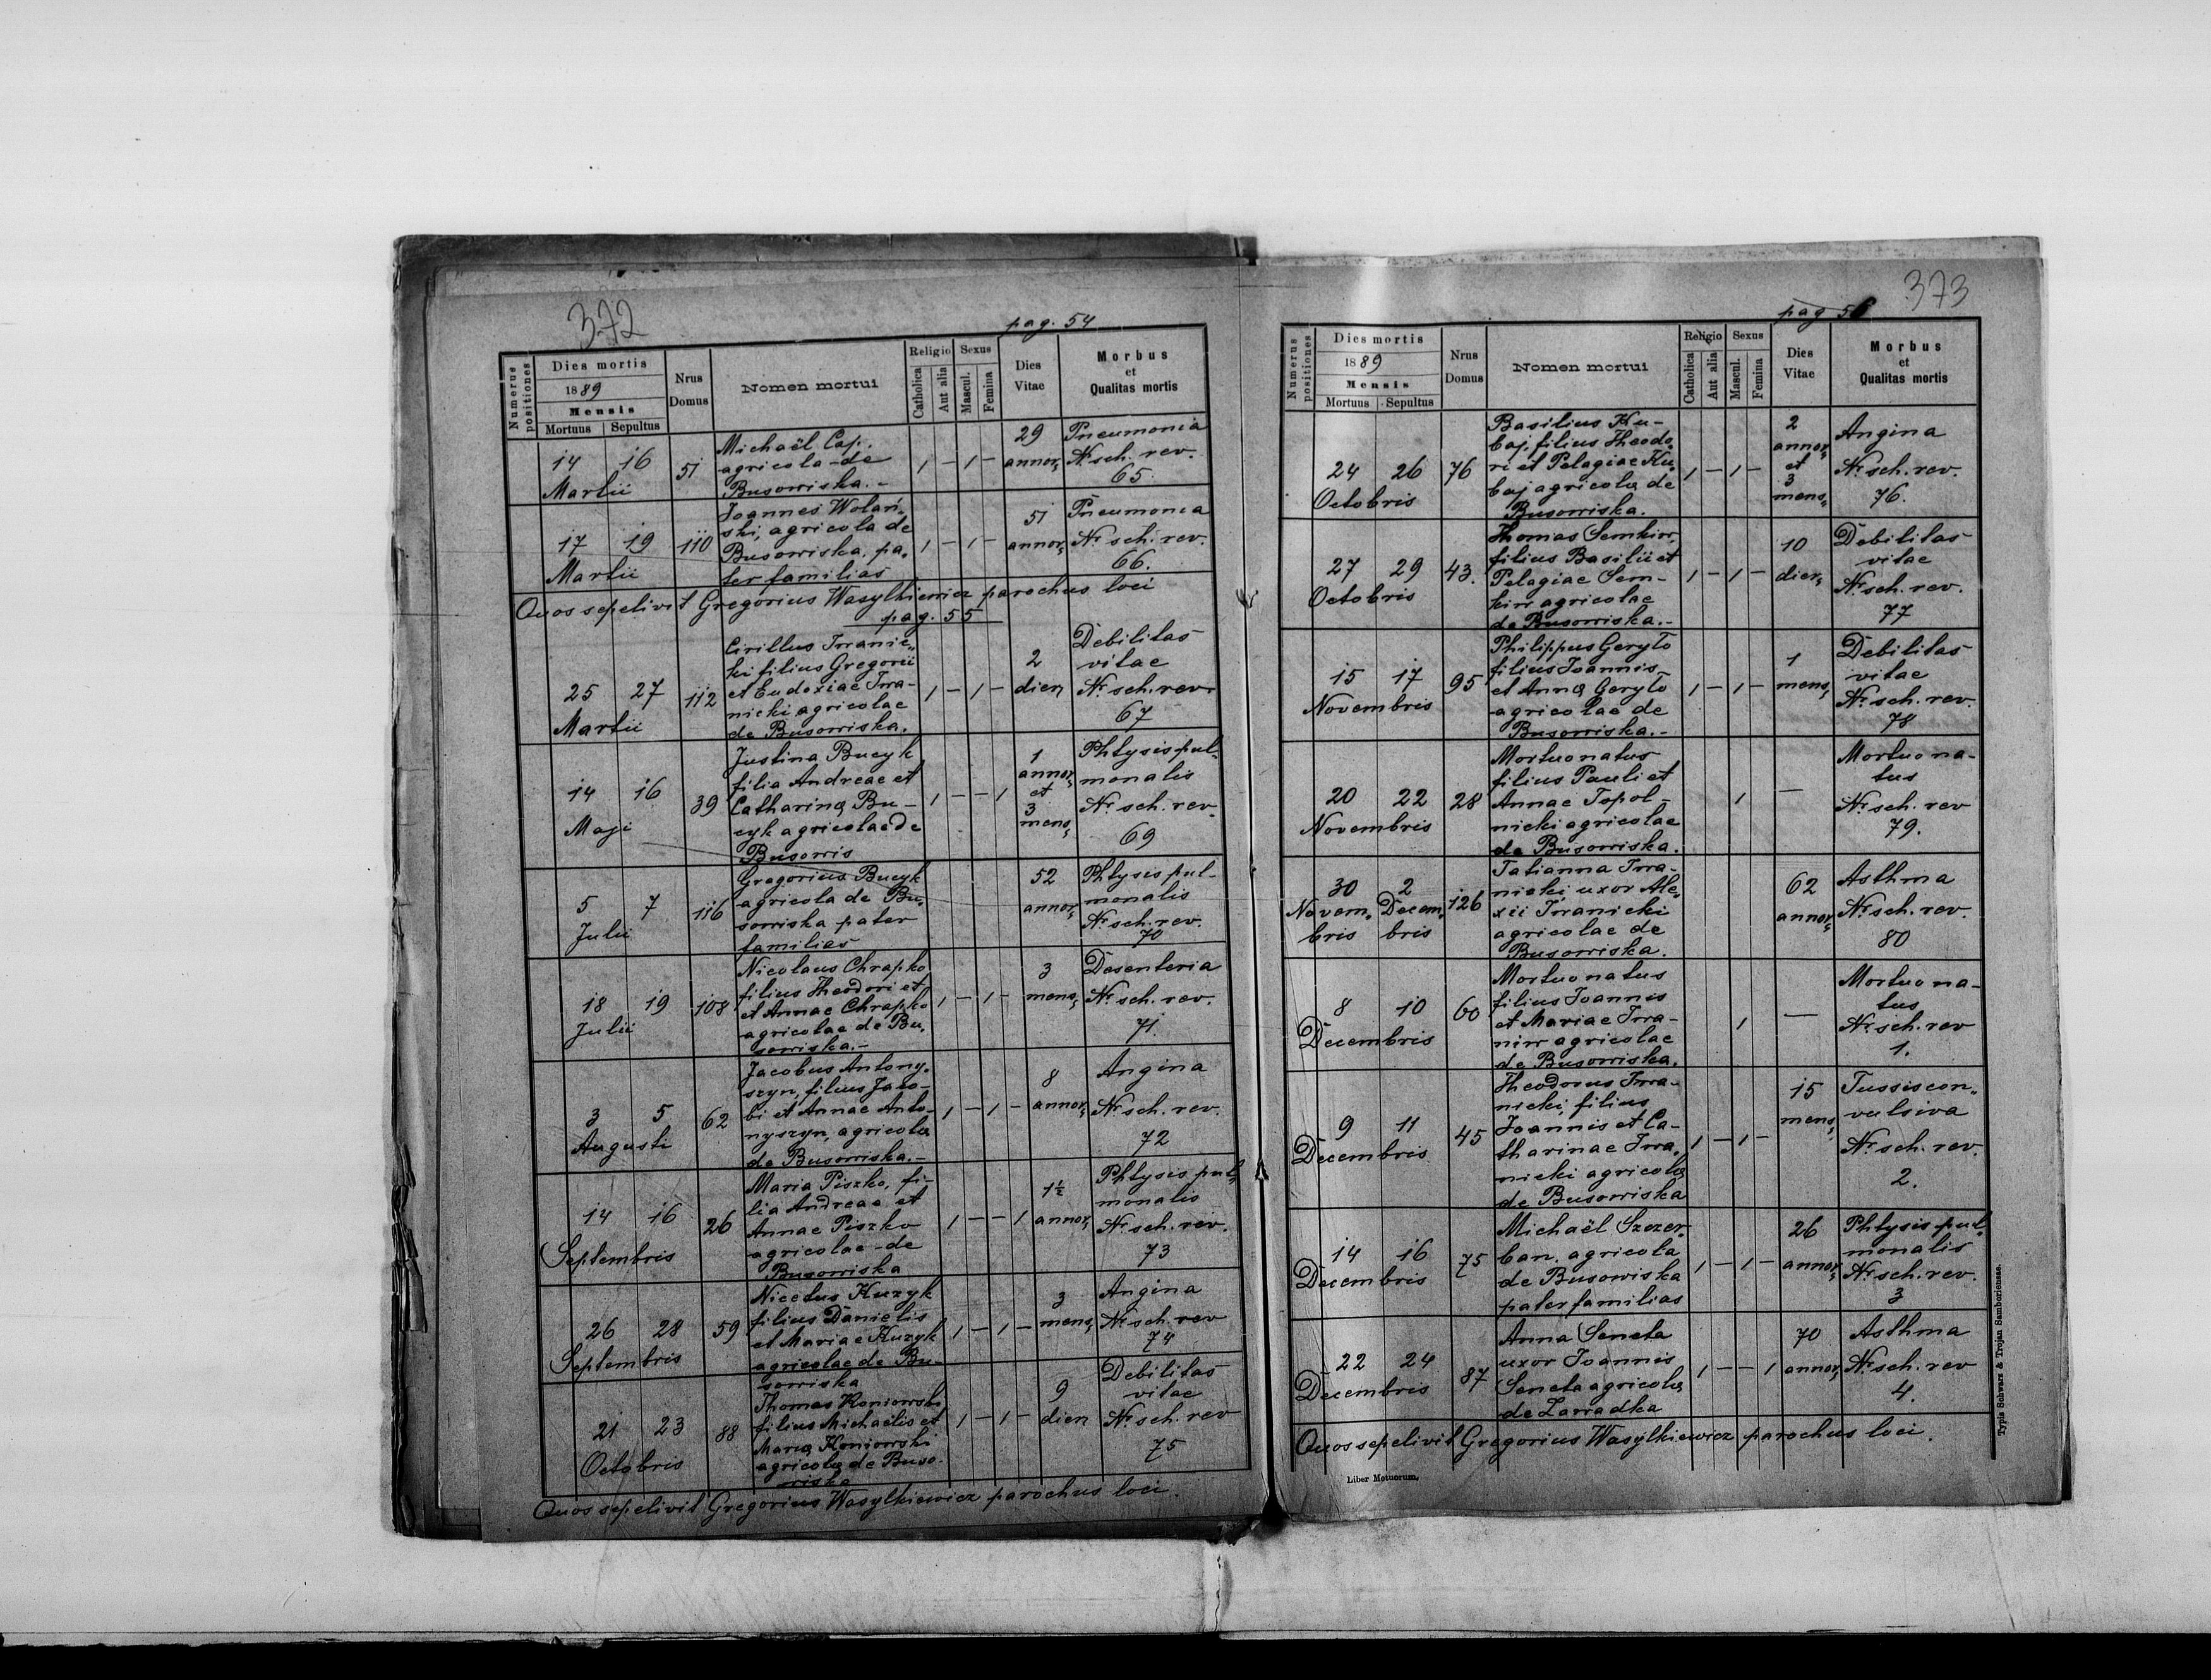 372
pag. 54
Numerus positiones
Dies mortis
1889
Mensis
Mortuus Sepultus
Nrus Domus
Nomen mortui
Religio
Catholica
Aut alia
Sexus
Mascul.
Femina
Dies Vitae
Morbus
et
Qualitas mortis
14 16
Martii
51
Michaël Cap.
agricola de
Busowiska.-
1 - 1 -
29
annor.
Pneumonia
Nr. sch. rev.
65.
17 19
Martii
110
Joannes Wolań-
ski, agricola de
Busowiska, pa-
ter familias
1 - 1 -
51
annor.
Pneumonia
Nr. sch. rev.
66.
Quos sepelivit Gregorius Wasylkiewicz parochus loci
pag. 55
25 27
Martii
112
Cirillus Iwanic-
ki filius Gregorii
et Eudoxiae Iwa-
nicki agricolae
de Busowiska.
1 - 1 -
2
dier
Debilitas
vitae
Nr. sch. rev.
67
14 16
Maji
39
Justina Bucyk
filia Andreae et
Catharinae Bu-
cyk agricolae de
Busowis
1 - - 1
1
annor.
et
3
mens.
Phtysis pul-
monalis
Nr. sch. rev.
69
5 7
Julii
116
Gregorius Bucyk
agricola de Bu-
sowiska pater
familias
52
annor.
Phtysis pul-
monalis
Nr. sch. rev.
70
18 19
Julii
108
Nicolaus Chrapko
filius Theodori et
et Annae Chrapko
agricolae de Bu-
sowiska.-
1 - 1 -
3
mens.
Desenteria
Nr. sch. rev.
71.
3 5
Augusti
62
Jacobus Antony-
szyn, filius Jaco-
bi et Annae Anto-
nyszyn, agricolae
de Busowiska.-
1 - 1 -
8
annor.
Angina
Nr. sch. rev.
72
14 16
Septembris
26
Maria Piszko, fi-
lia Andreae et
Annae Piszko
agricolae de
Busowiska
1 - - 1
1½
annor.
Phtysis pul-
monalis
Nr. sch. rev.
73
26 28
Septembris
59
Nicetus Kuzyk
filius Danielis
et Mariae Kuzyk
agricolae de Bu-
sowiska
1 - 1 -
3
mens.
Angina
Nr. sch. rev
74
21 23
Octobris
88
Thomas Koniowski
filius Michaelis et
Mariae Koniowski
agricolae de Buso-
wiska
1 - 1 -
9
dier
Debilitas
vitae
Nr. sch. rev
75
Quos sepelivit Gregorius Wasylkiewicz parochus loci.
373
pag 56
Numerus positiones
Dies mortis
1889
Mensis
Mortuus Sepultus
Nrus Domus
Nomen mortui
Religio
Catholica
Aut alia
Sexus
Mascul.
Femina
Dies Vitae
Morbus
et
Qualitas mortis
24 26
Octobris
76
Basilius Ku-
baj, filius Theodo-
ri et Pelagiae Ku-
baj agricolae de
Busowiska.
1 - 1 -
2
annor.
et
3
mens.
Angina
Nr. sch. rev.
76.
27 29
Octobris
43.
Thomas Semkiw,
filius Basilii et
Pelagiae Sem-
kiw agricolae
de Busowiska.-
1 - 1 -
10
dier.
Debilitas
vitae
Nr. sch. rev.
77
15 17
Novembris
95
Philippus Geryło
filius Joannis
et Annae Geryło
agricolae de
Busowiska.-
1 - 1 -
1
mens.
Debilitas
vitae
Nr. sch. rev.
78
20 22
Novembris
28
Mortuonatus
filius Pauli et
Annae Topol-
nicki agricolae
de Busowiska.
1
—
Mortuona-
tus
Nr. sch. rev
79.
30 2
Novem- Decem-
bris bris
126
Tatianna Iwa-
nicki, uxor Ale-
xii Iwanicki
agricolae de
Busowiska.
62
annor.
Asthma
Nr. sch. rev.
80
8 10
Decembris
60
Mortuonatus
filius Joannis
et Mariae Iwa-
niw agricolae
de Busowiska.
1
—
Mortuona-
tus
Nr. sch. rev
1.
9 11
Decembris
45
Theodorus Iwa-
nicki, filius
Joannis et Ca-
tharinae Iwa-
nicki agricolae
de Busowiska
1 - 1 -
15
mens.
Tussis con-
vulsiva
Nr. sch. rev.
2.
14 16
Decembris
75
Michaël Szczer-
ban agricola
de Busowiska
pater familias
1 - 1 -
26
annor.
Phtysis pul-
monalis
Nr. sch. rev.
3
22 24
Decembris
87
Anna Seneta
uxor Joannis
Seneta agricolae
de Zawadka
1 - - 1
70
annor.
Asthma
Nr. sch. rev
4.
Quos sepelivit Gregorius Wasylkiewicz parochus loci.
Liber Motuorum.
Typis Schwarz & Trojan Samboriensae.